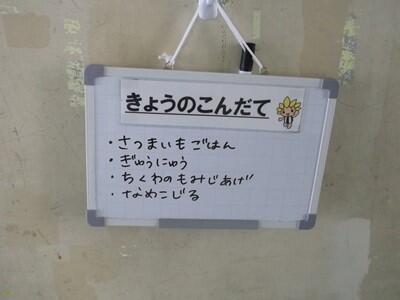 きょうのこんだて
・さつまいもごはん
・ぎゅうにゅう
・ちくわのもみじあげ
・なめこじる